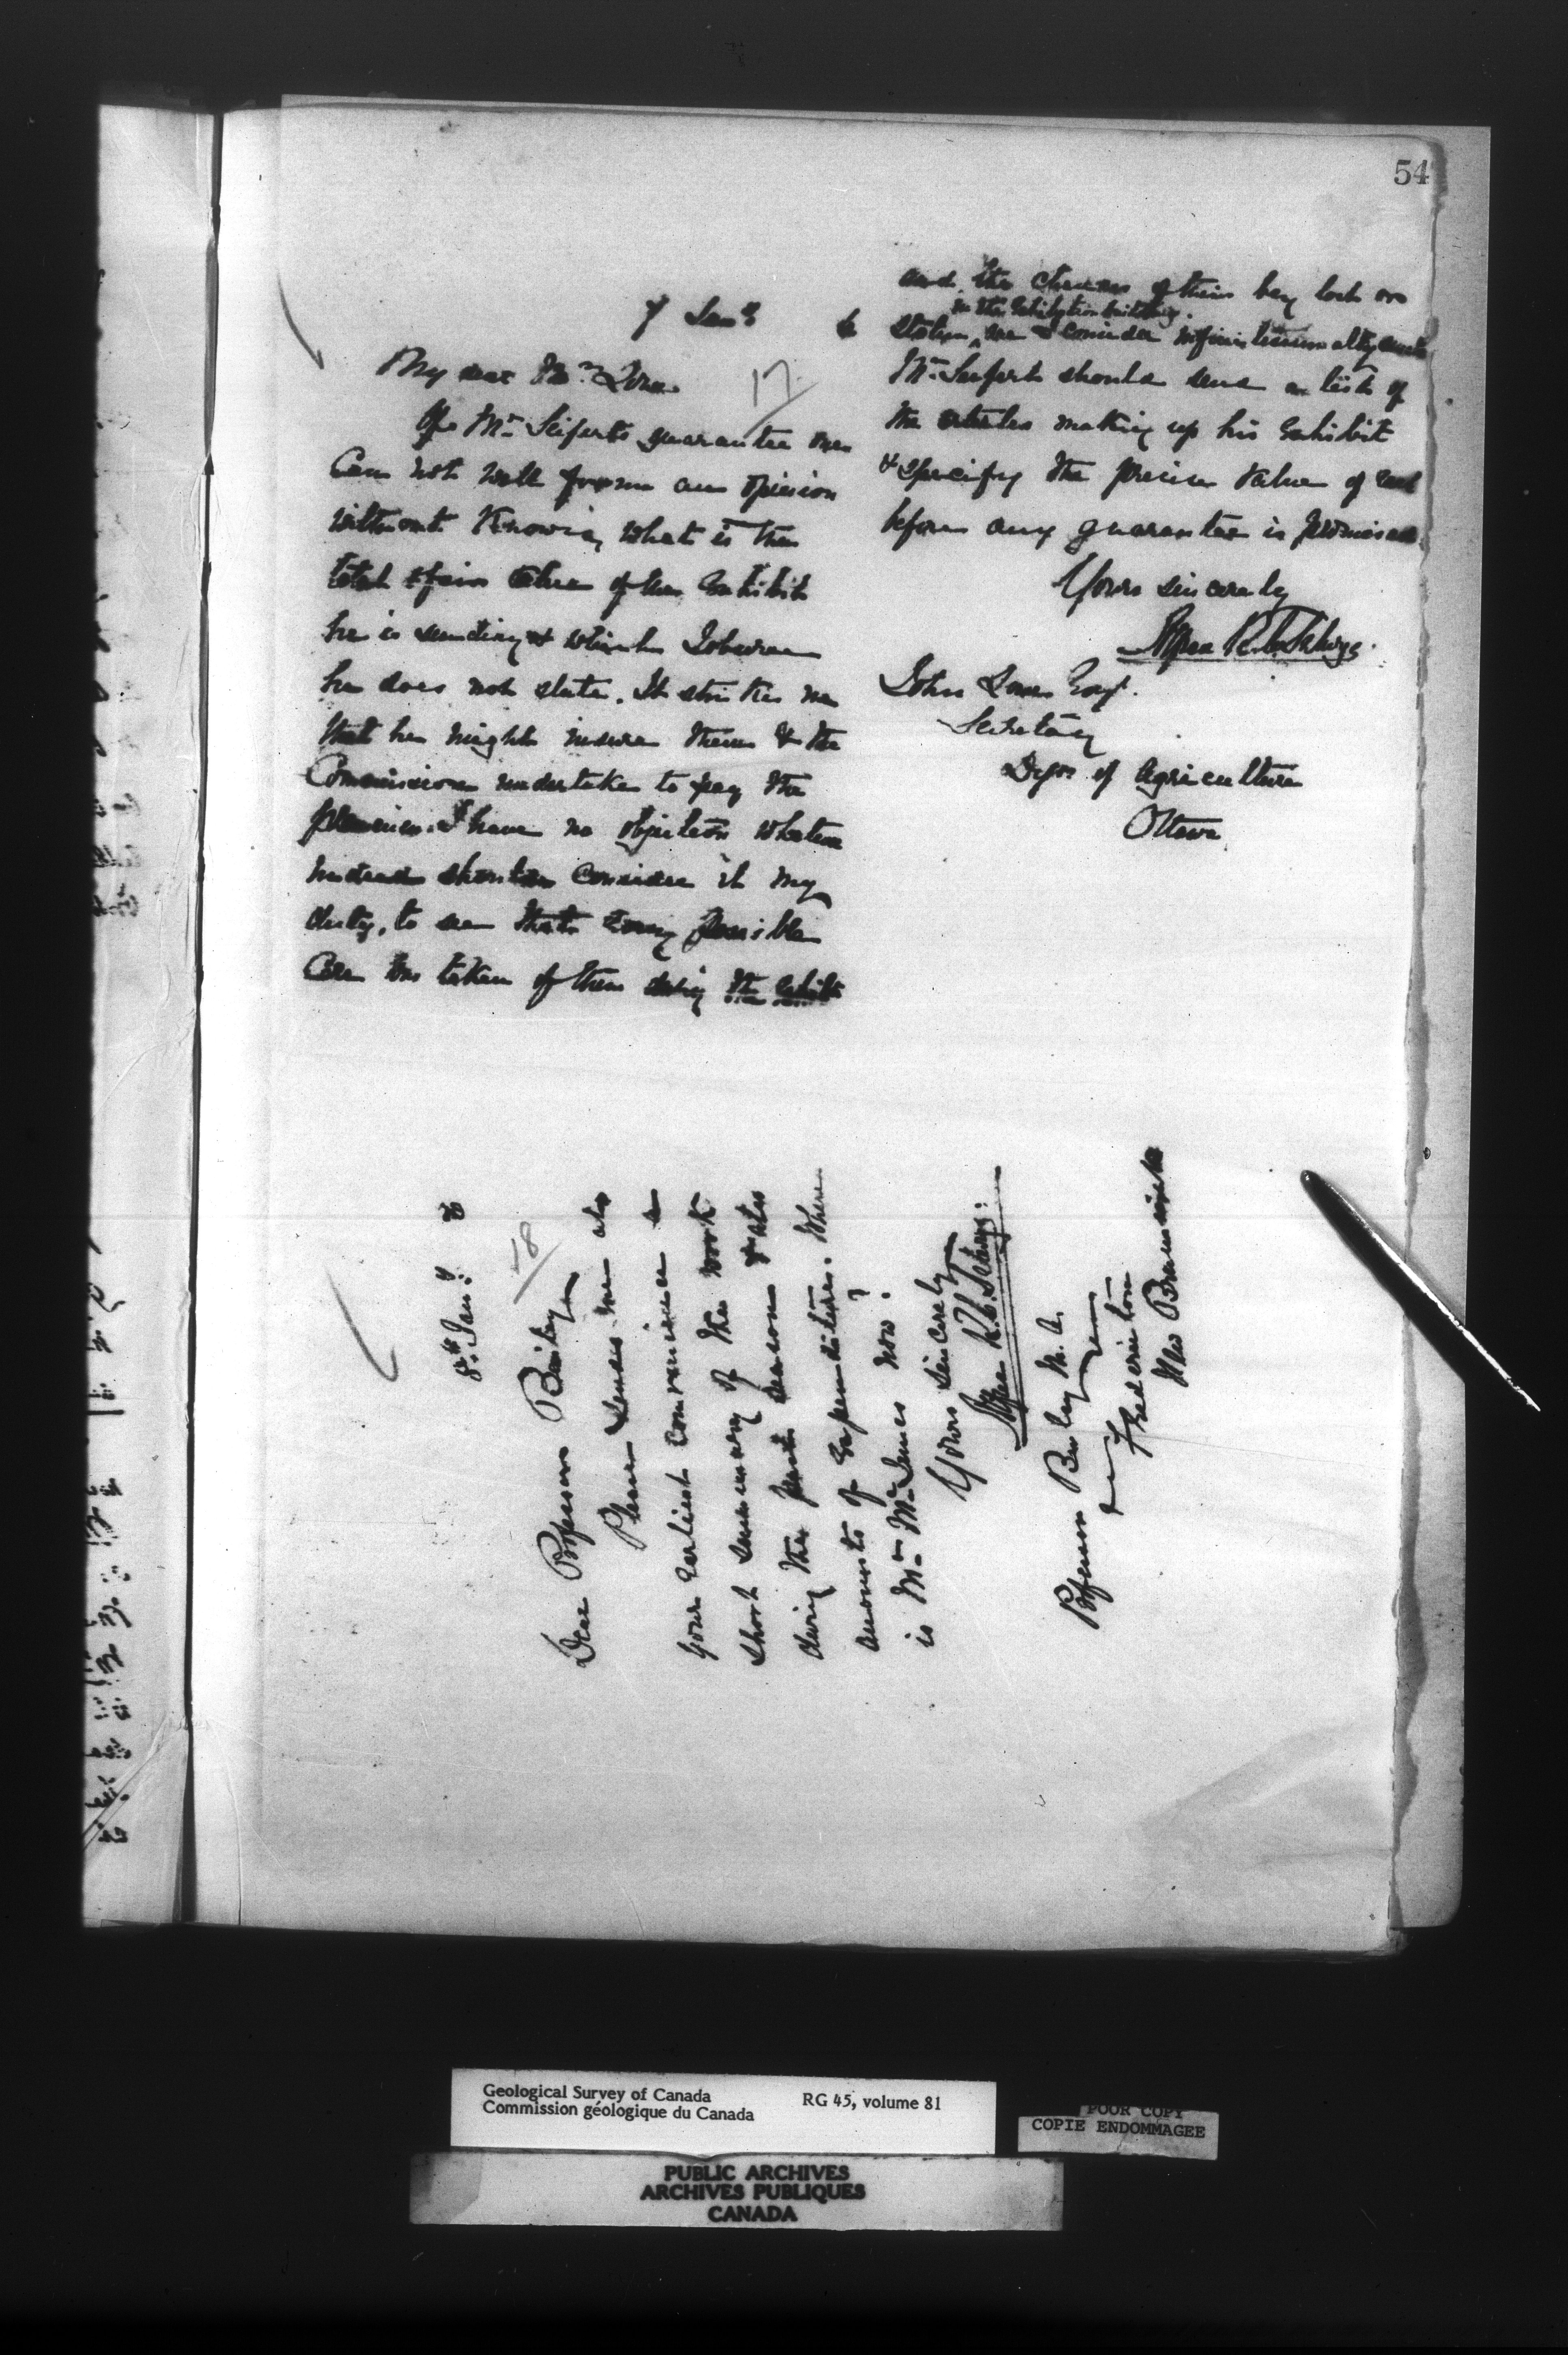 54
7 Jany 6
17
My dear Mr. Lowe
Of Mr. Seifert's guarantee one
can not well form an opinion
without knowing what is the
total & fair value of the Exhibit
he is sending & which I observe
he does not state. It strikes me
that he might insure them & the
Commission undertake to pay the
premium. I have no objection whatever
indeed should consider it my
duty, to see that every possible
care be taken of them during the
and the chances of their being lost or
in the Exhibition building
stolen, are I consider
Mr. Seifert should send a list of
the articles making up his Exhibit
& specify the precise value of each
before any guarantee is promised.
Yours sincerely
Alfred R. C. Selwyn.
John Lowe Esqr.
Secretary
Depr. of Agriculture
Ottawa
8th Jany. 6
18
Dear Professor Bailey
Please send me at
your earliest convenience a
short summary of the work
during the past season & also
amounts of Expenditures. Where
is Mr. McInnes now?
Yours sincerely
Alfred R. C. Selwyn.
Professor Bailey M.A.
Fredericton
New Brunswick
Geological Survey of Canada
Commission géologique du Canada
RG 45, volume 81
POOR COPY
COPIE ENDOMMAGEE
PUBLIC ARCHIVES
ARCHIVES PUBLIQUES
CANADA